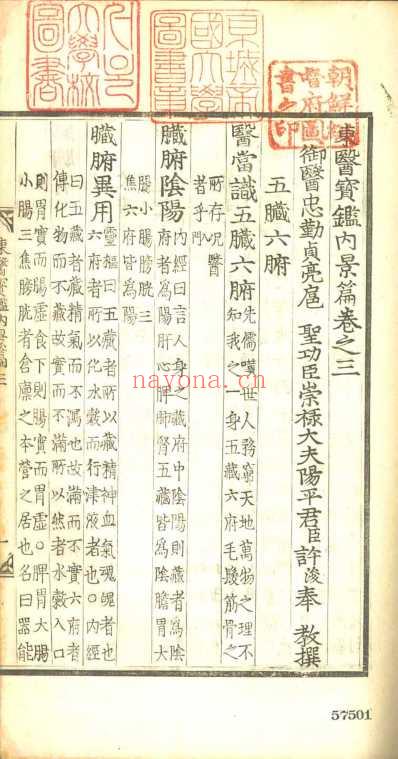 朝鮮總
督府圖
書之印
京城帝
國大學
圖書章
서울
大學校
圖書
東醫寶鑑內景篇卷之三
御醫忠勤貞亮扈 聖功臣崇祿大夫陽平君臣許浚奉 教撰
五臟六腑
醫當識五臟六腑 先儒嘆世人務窮天地萬物之理不
知我之一身五藏六府毛髮筋骨之
所存況醫
者乎入門
臟腑陰陽 內經曰言人身之藏府中陰陽則藏者爲陰
府者爲陽肝心脾肺腎五藏皆爲陰膽胃大
腸小腸膀胱三
焦六府皆爲陽
臟腑異用 靈樞曰五藏者所以藏精神血氣魂魄者也
六府者所以化水穀而行津液者也○內經
曰五藏者藏精氣而不瀉也故滿而不實六府者
傳化物而不藏故實而不滿所以然者水穀入口
則胃實而腸虛食下則腸實而胃虛○脾胃大腸
小腸三焦膀胱者倉廩之本營之居也名曰器能
nayona.cn
57501